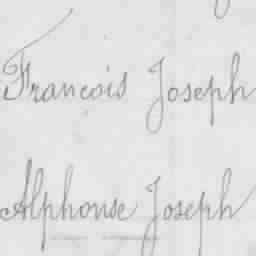 Francois Joseph
Alphonse Joseph